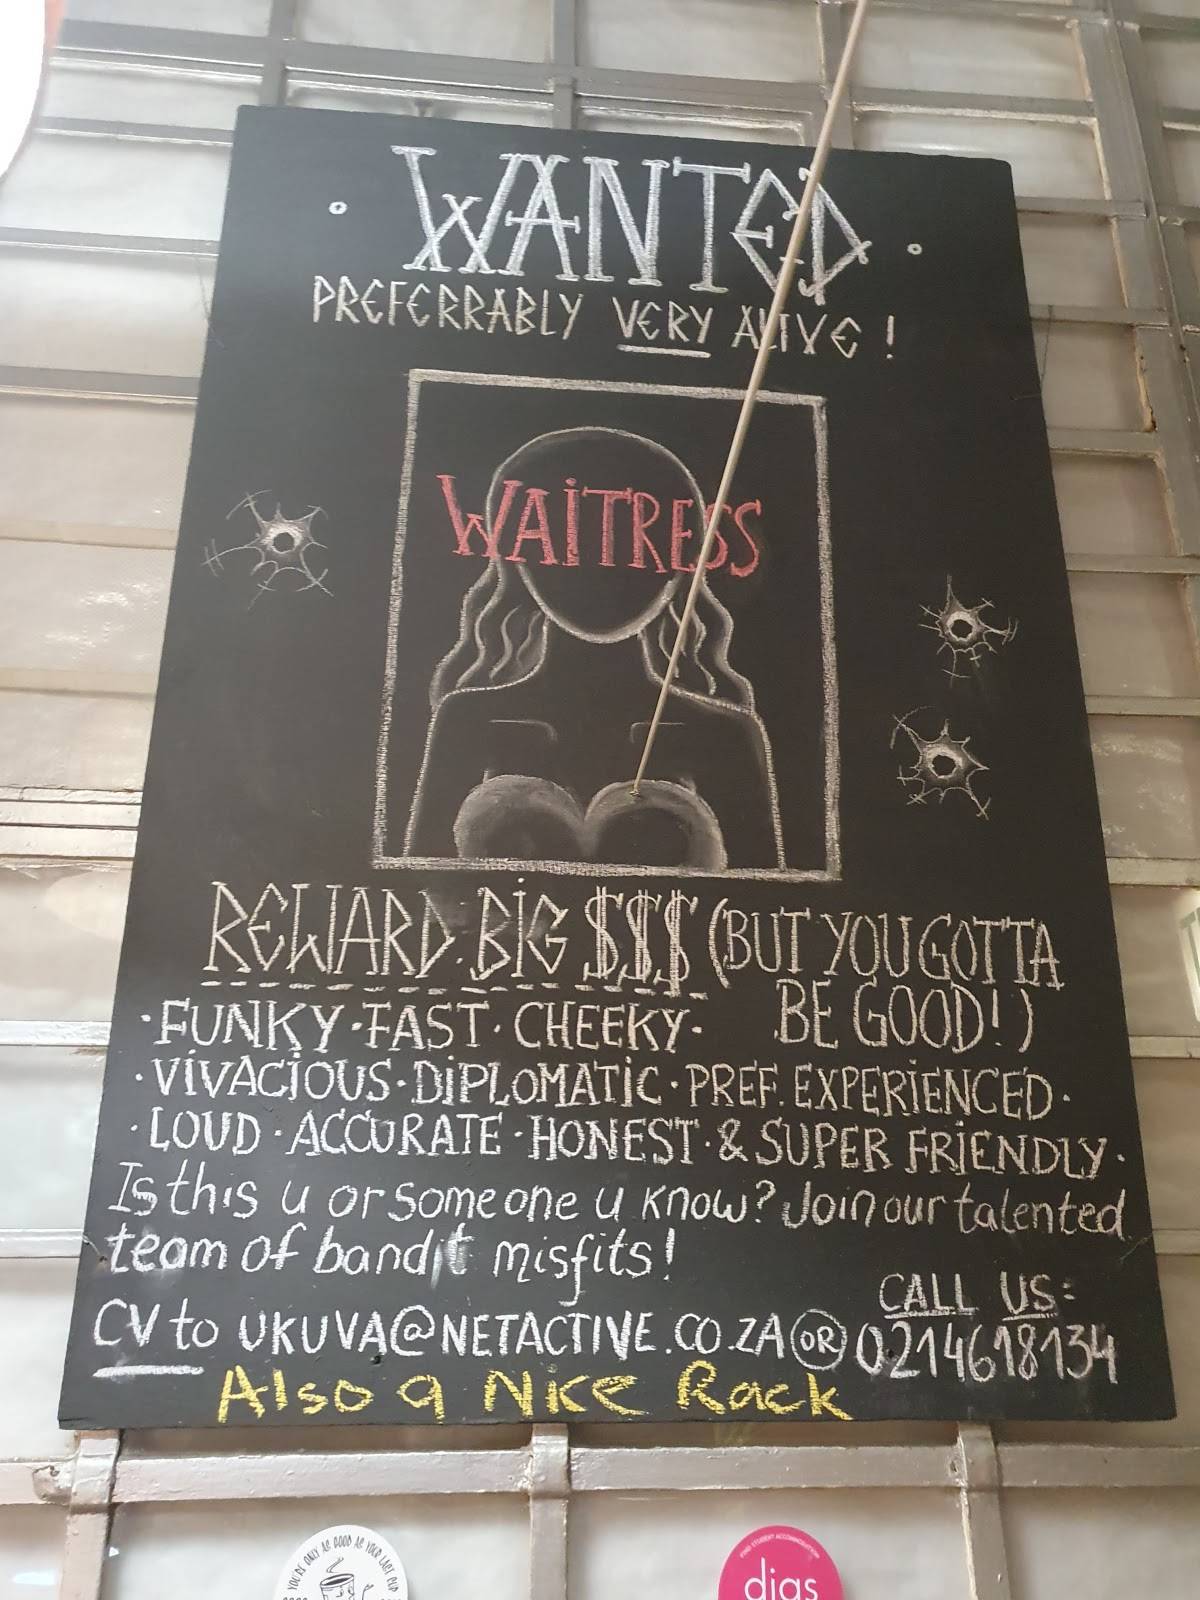 WANTED
PREFERRABLY VERY ALIVE!
WAITRESS
REWARD. BIG $$$ (BUT YOU GOTTA
BE GOOD!)
· FUNKY · FAST · CHEEKY ·
· VIVACIOUS · DIPLOMATIC · PREF. EXPERIENCED ·
· LOUD · ACCURATE · HONEST · & SUPER FRIENDLY ·
Is this u or someone u know? Join our talented
team of bandit misfits!
CALL US:
CV to UKUVA@NETACTIVE.CO.ZA OR 0214618134
Also a Nice Rack
YOU'RE ONLY AS GOOD AS YOUR LAST CUP
FIND STUDENT ACCOMMODATION
digs